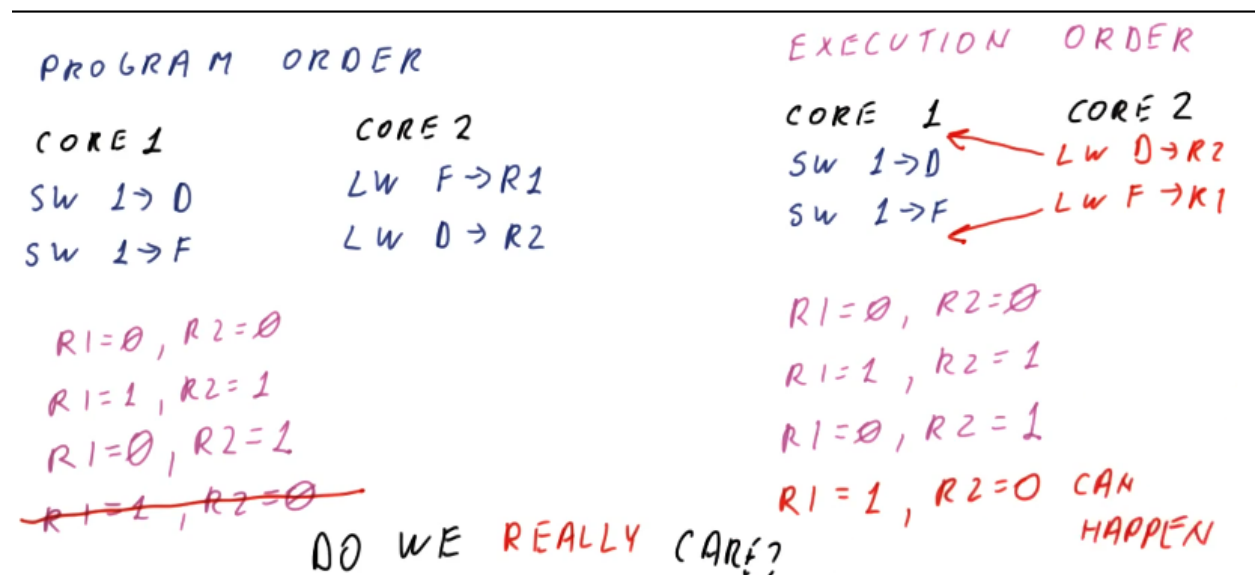 PROGRAM ORDER
CORE 1 CORE 2
SW 1→D LW F→R1
SW 1→F LW D→R2
R1=0, R2=0
R1=1, R2=1
R1=0, R2=1
R1=1, R2=0
EXECUTION ORDER
CORE 1 CORE 2
SW 1→D LW D→R2
SW 1→F LW F→R1
R1=0, R2=0
R1=1, R2=1
R1=0, R2=1
R1=1, R2=0 CAN
HAPPEN
DO WE REALLY CARE?